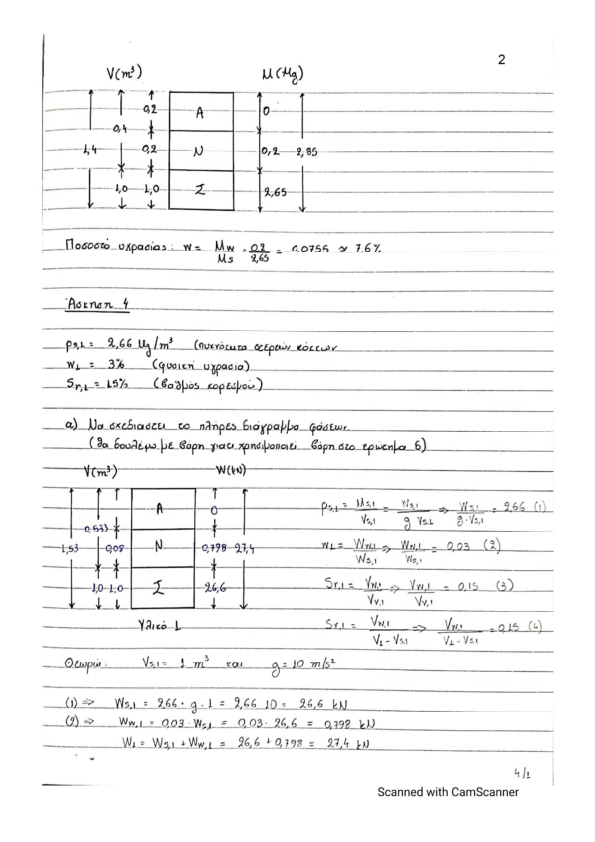 2
V(m³) M(Mg)
0,2 A 0
0,4
1,4 0,2 N 0,2 2,85
1,0 1,0 Σ 2,65
Ποσοστό υγρασίας: w = Mw/Ms = 0,2/2,65 = 0,0755 ≈ 7,6%
Άσκηση 4
ρs,1 = 2,66 Mg/m³ (πυκνότητα στερεών κόκκων
w1 = 3% (φυσική υγρασία)
Sr,1 = 15% (βαθμός κορεσμού)
α) Να σχεδιαστεί το πλήρες διάγραμμα φάσεων.
(θα δουλέψω με βάρη γιατί χρησιμοποιεί βάρη στο ερώτημα β)
V(m³) W(kN)
A 0 ρs,1 = Ms,1/Vs,1 = Ws,1/(g Vs,1) => Ws,1/(g·Vs,1) = 2,66 (1)
0,533
1,53 0,08 N 0,798 27,4 w1 = Ww,1/Ws,1 => Ww,1/Ws,1 = 0,03 (2)
1,0 1,0 Σ 26,6 Sr,1 = Vw,1/Vv,1 => Vw,1/Vv,1 = 0,15 (3)
Υλικό 1 Sr,1 = Vw,1/(V1 - Vs,1) => Vw,1/(V1 - Vs,1) = 0,15 (4)
Θεωρώ: Vs,1 = 1 m³ και g = 10 m/s²
(1) => Ws,1 = 2,66 · g · 1 = 2,66 10 = 26,6 kN
(2) => Ww,1 = 0,03 · Ws,1 = 0,03 · 26,6 = 0,798 kN
W1 = Ws,1 + Ww,1 = 26,6 + 0,798 = 27,4 kN
4/1
Scanned with CamScanner